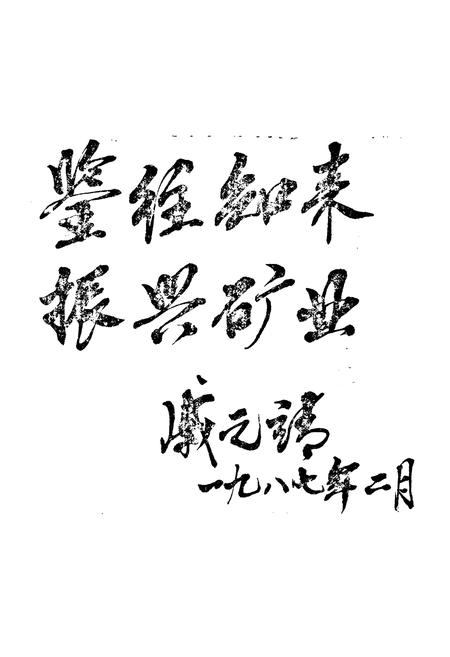 鉴往知来
振兴矿业
戚元靖
一九八七年二月